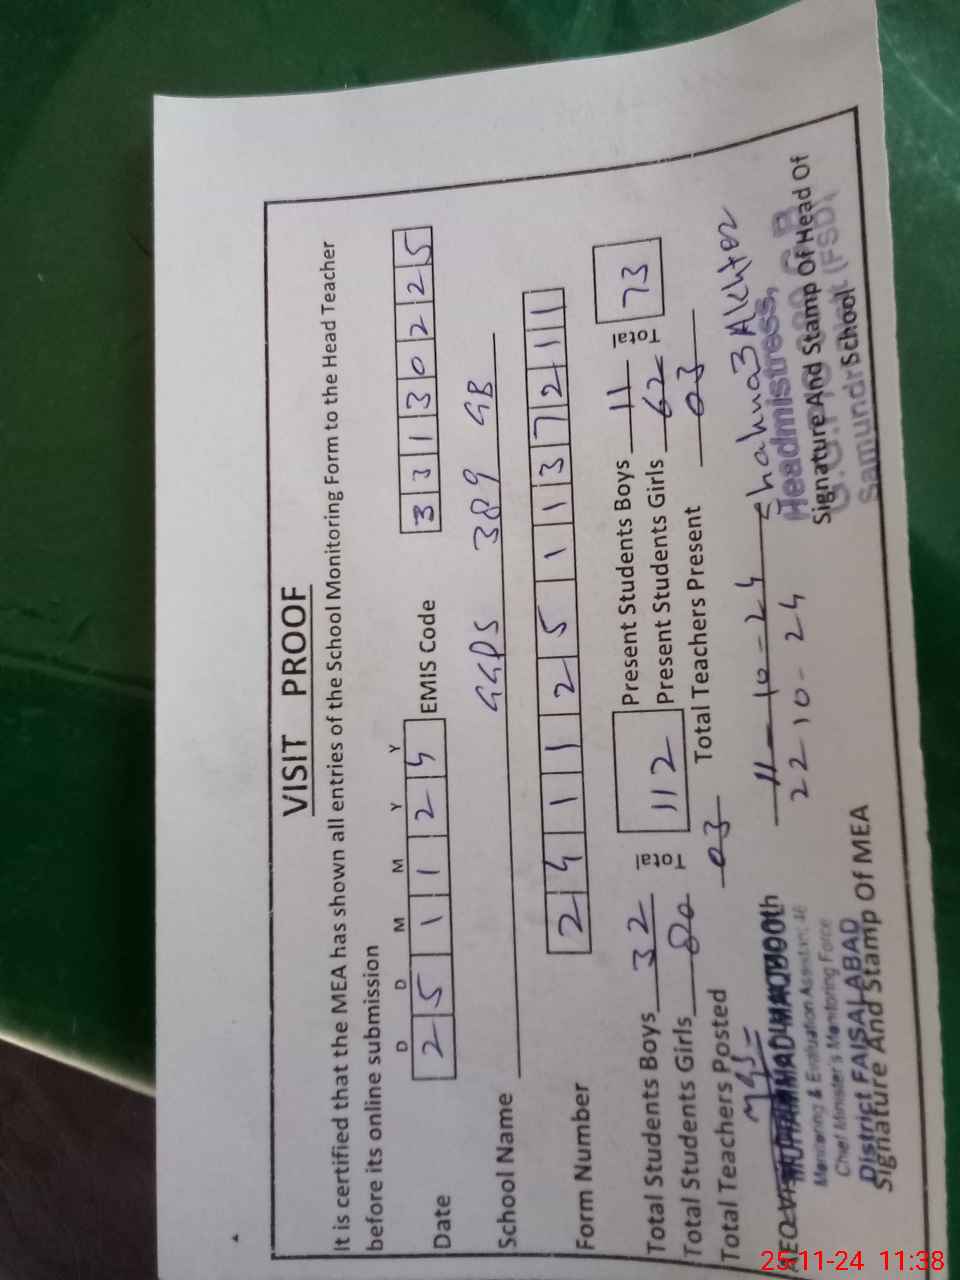 VISIT PROOF
It is certified that the MEA has shown all entries of the School Monitoring Form to the Head Teacher
before its online submission
D D M M Y Y
Date 2 5 1 1 2 4 EMIS Code 3 3 1 3 0 2 2 5
School Name GGPS 389 GB
Form Number 2 4 1 1 2 5 1 1 3 7 2 1 1
Total Students Boys 32 Total 112 Present Students Boys 11 Total 73
Total Students Girls 80 Present Students Girls 62
Total Teachers Posted 03 Total Teachers Present 03
11-10-24 Shahnaz Akhter
22 10-24
MUHAMMAD MAQBOOL
Monitoring & Evaluation Assistant
Chief Minister's Monitoring Force
District FAISALABAD
Signature And Stamp Of MEA
Headmistress,
Signature And Stamp Of Head Of
School
Samundri (FSD)
25-11-24 11:38